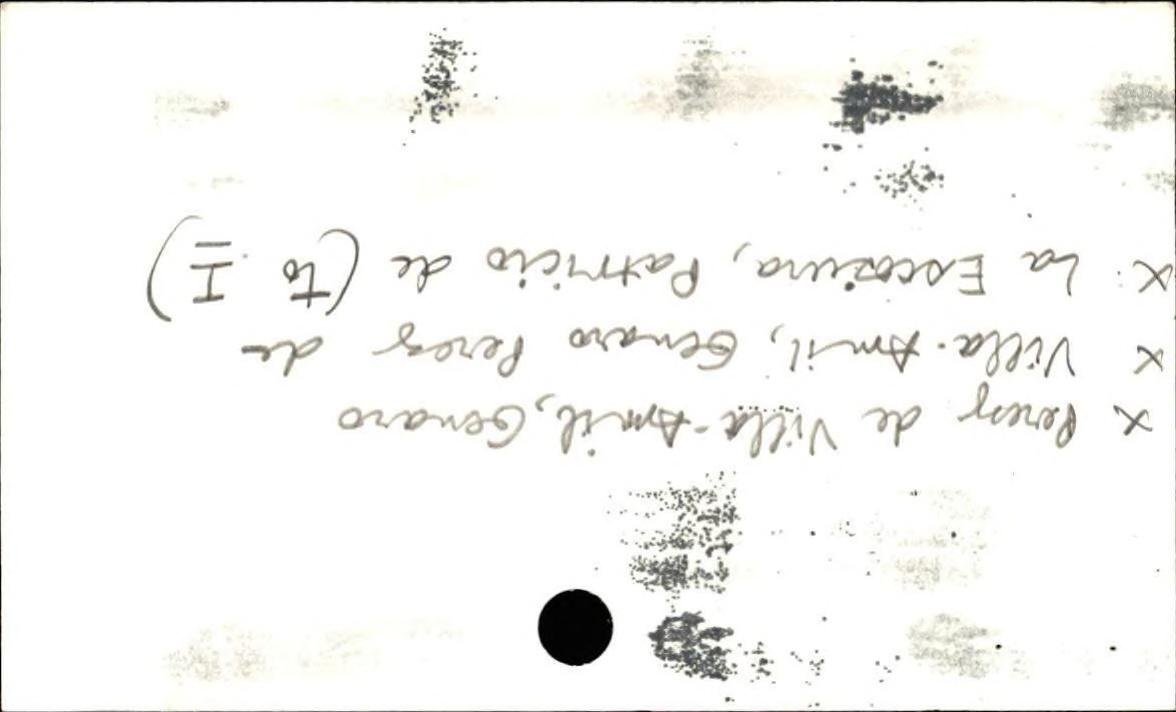 x Perez de Villa-Amil, Genaro
x Villa-Amil, Genaro Perez de
x La Escosura, Patricio de (to I)